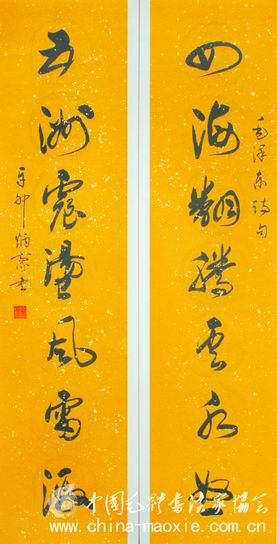 毛泽东诗句
四海翻腾云水怒
五洲震盪风雷激
辛卯炳书
中国毛体书法家协会
www.china-maoxie.com.cn